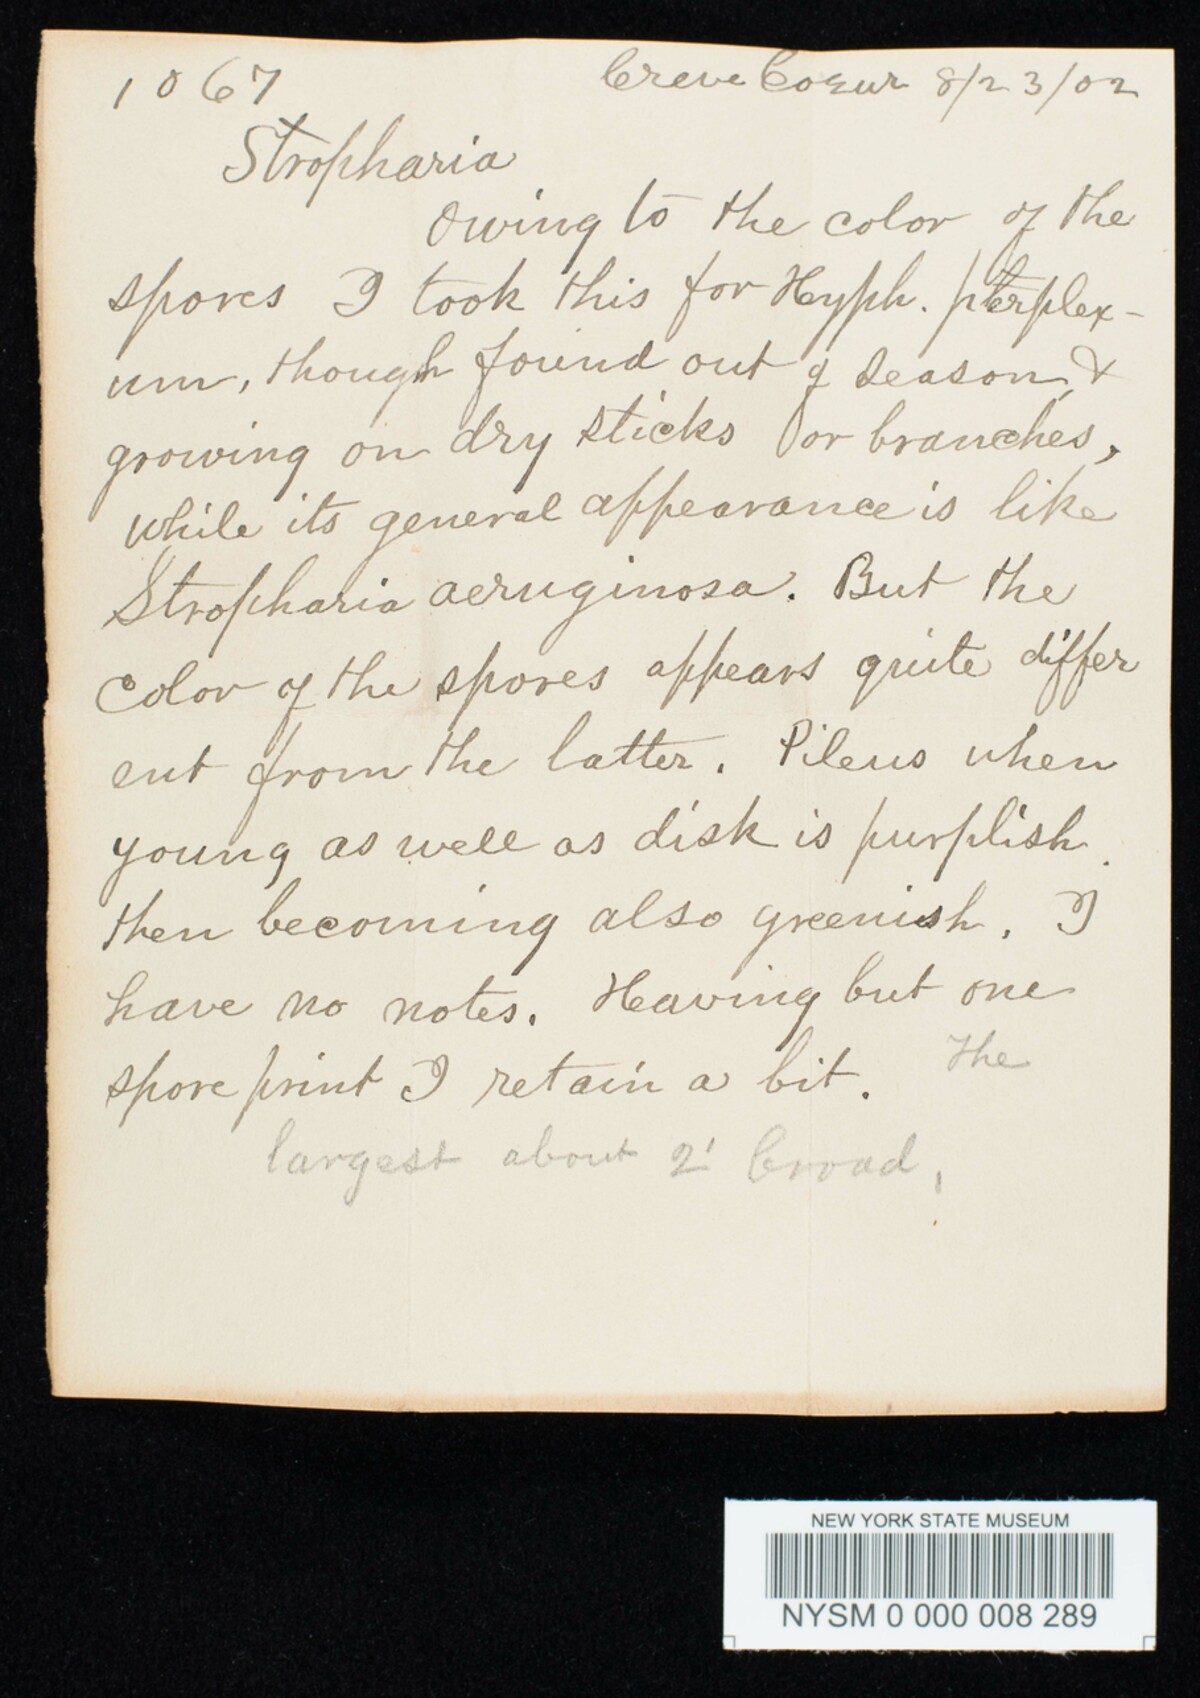 1067 Creve Coeur 8/23/02
Stropharia
Owing to the color of the
spores I took this for Hyph. perplex-
um, though found out of season, &
growing on dry sticks or branches,
while its general appearance is like
Stropharia aeruginosa. But the
color of the spores appears quite differ
ent from the latter. Pileus when
young as well as disk is purplish
then becoming also greenish. I
have no notes. Having but one
spore print I retain a bit. The
largest about 2' broad.
NEW YORK STATE MUSEUM
NYSM 0 000 008 289